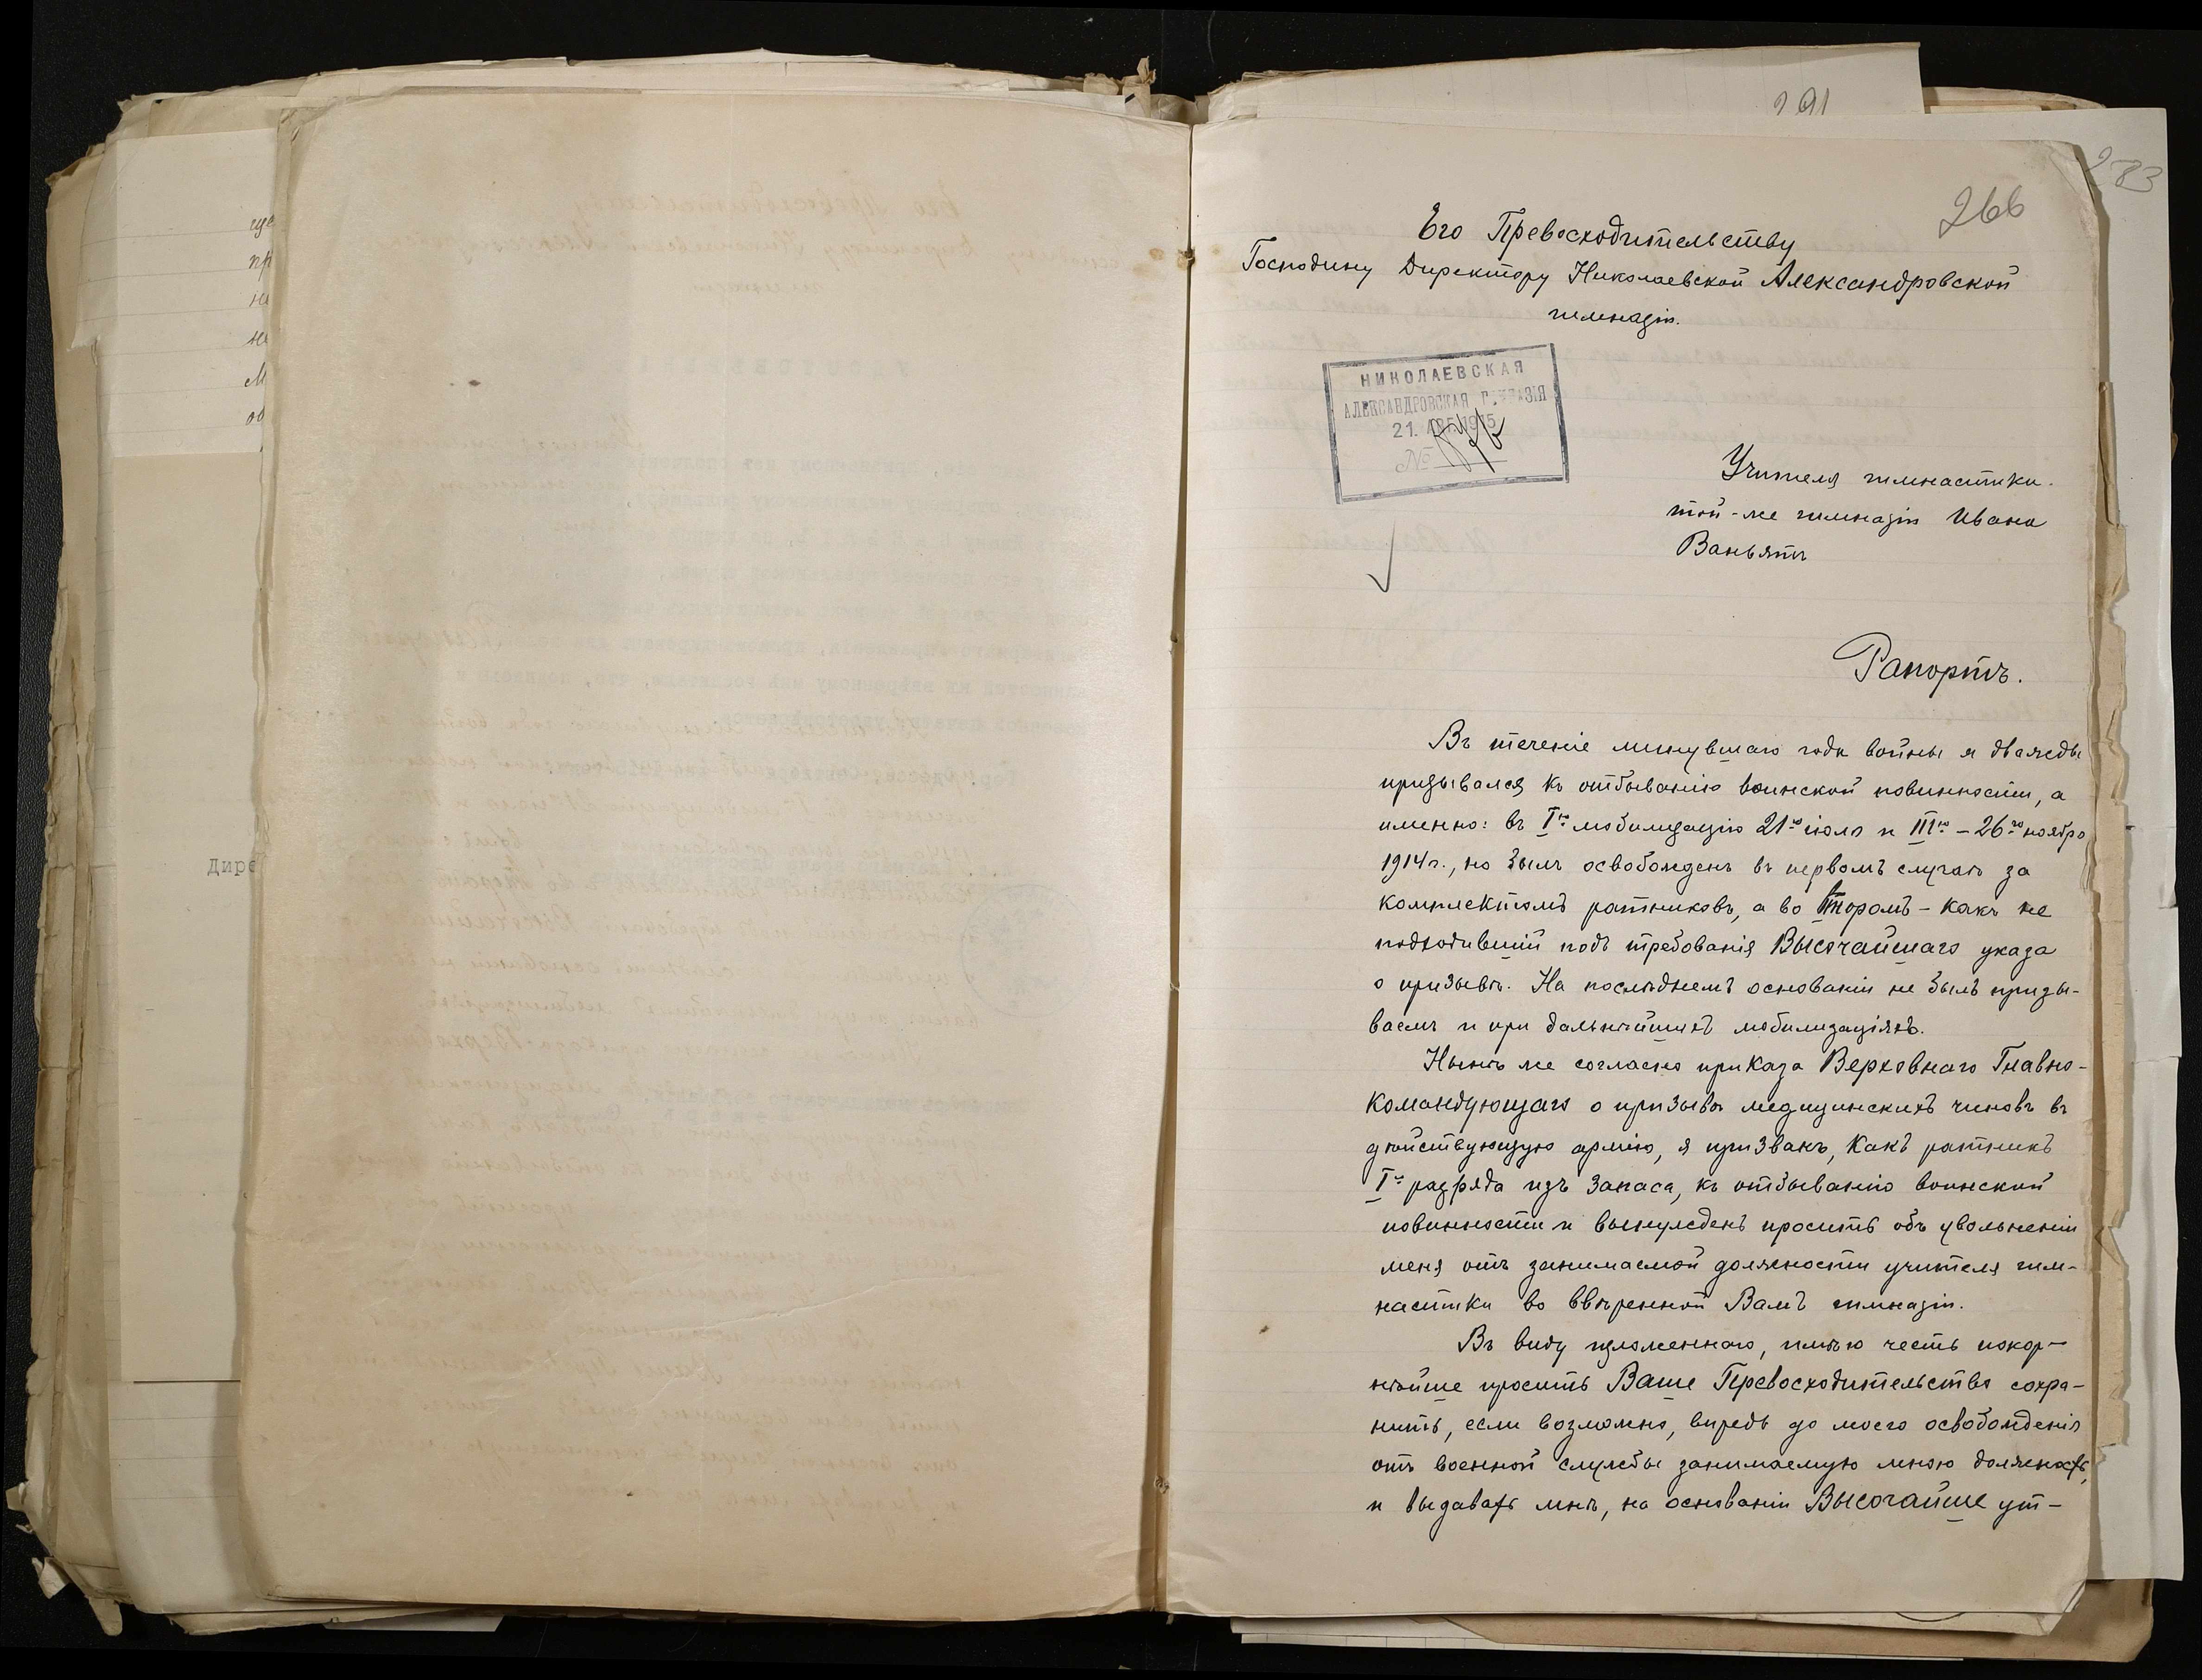 где
пр
не
не
М
об
Дире
291
283
266
Его Превосходительству
Господину Директору Николаевской Александровской
гимназіи.
НИКОЛАЕВСКАЯ
АЛЕКСАНДРОВСКАЯ ГИМНАЗІЯ
21. АВГ. 1915
№
Учителя гимнастики
той-же гимназіи Ивана
Ваньятъ
Рапортъ.
Въ теченіе минувшаго года войны я дважды
призывался къ отбыванію воинской повинности, а
именно: въ Iю мобилизацію 21го іюля и IIIю – 26го ноября
1914 г., но былъ освобожденъ въ первомъ случаѣ за
комплектомъ ратниковъ, а во второмъ – какъ не
подходившій подъ требованія Высочайшаго указа
о призывѣ. На послѣднемъ основаніи не былъ призы-
ваемъ и при дальнѣйшихъ мобилизаціяхъ.
Нынѣ же согласно приказа Верховнаго Главно-
командующаго о призывѣ медицинскихъ чиновъ въ
дѣйствующую армію, я призванъ, какъ ратникъ
Iго разряда изъ запаса, къ отбыванію воинской
повинности и вынужденъ просить объ увольненіи
меня отъ занимаемой должности учителя гим-
настики во ввѣренной Вамъ гимназіи.
Въ виду изложеннаго, имѣю честь покор-
нѣйше просить Ваше Превосходительство сохра-
нить, если возможно, впредь до моего освобожденія
отъ военной службы занимаемую мною должность,
и выдавать мнѣ, на основаніи Высочайше ут-